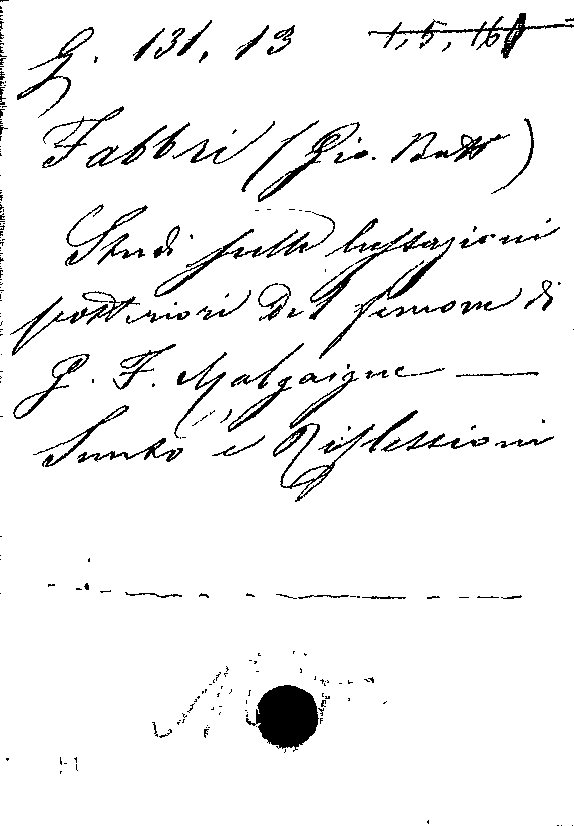 G. 131, 13 1, 5, 161
Fabbri (Gio. Batt)
Studi sulle lussazioni
posteriori del femore di
G. F. Malgaigne —
Sunto e Riflessioni